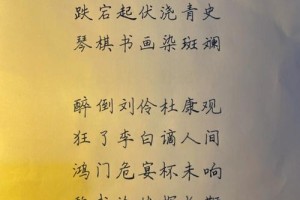 跌宕起伏浇青史
琴棋书画染斑斓
醉倒刘伶杜康观
狂了李白谪人间
鸿门危宴杯未响